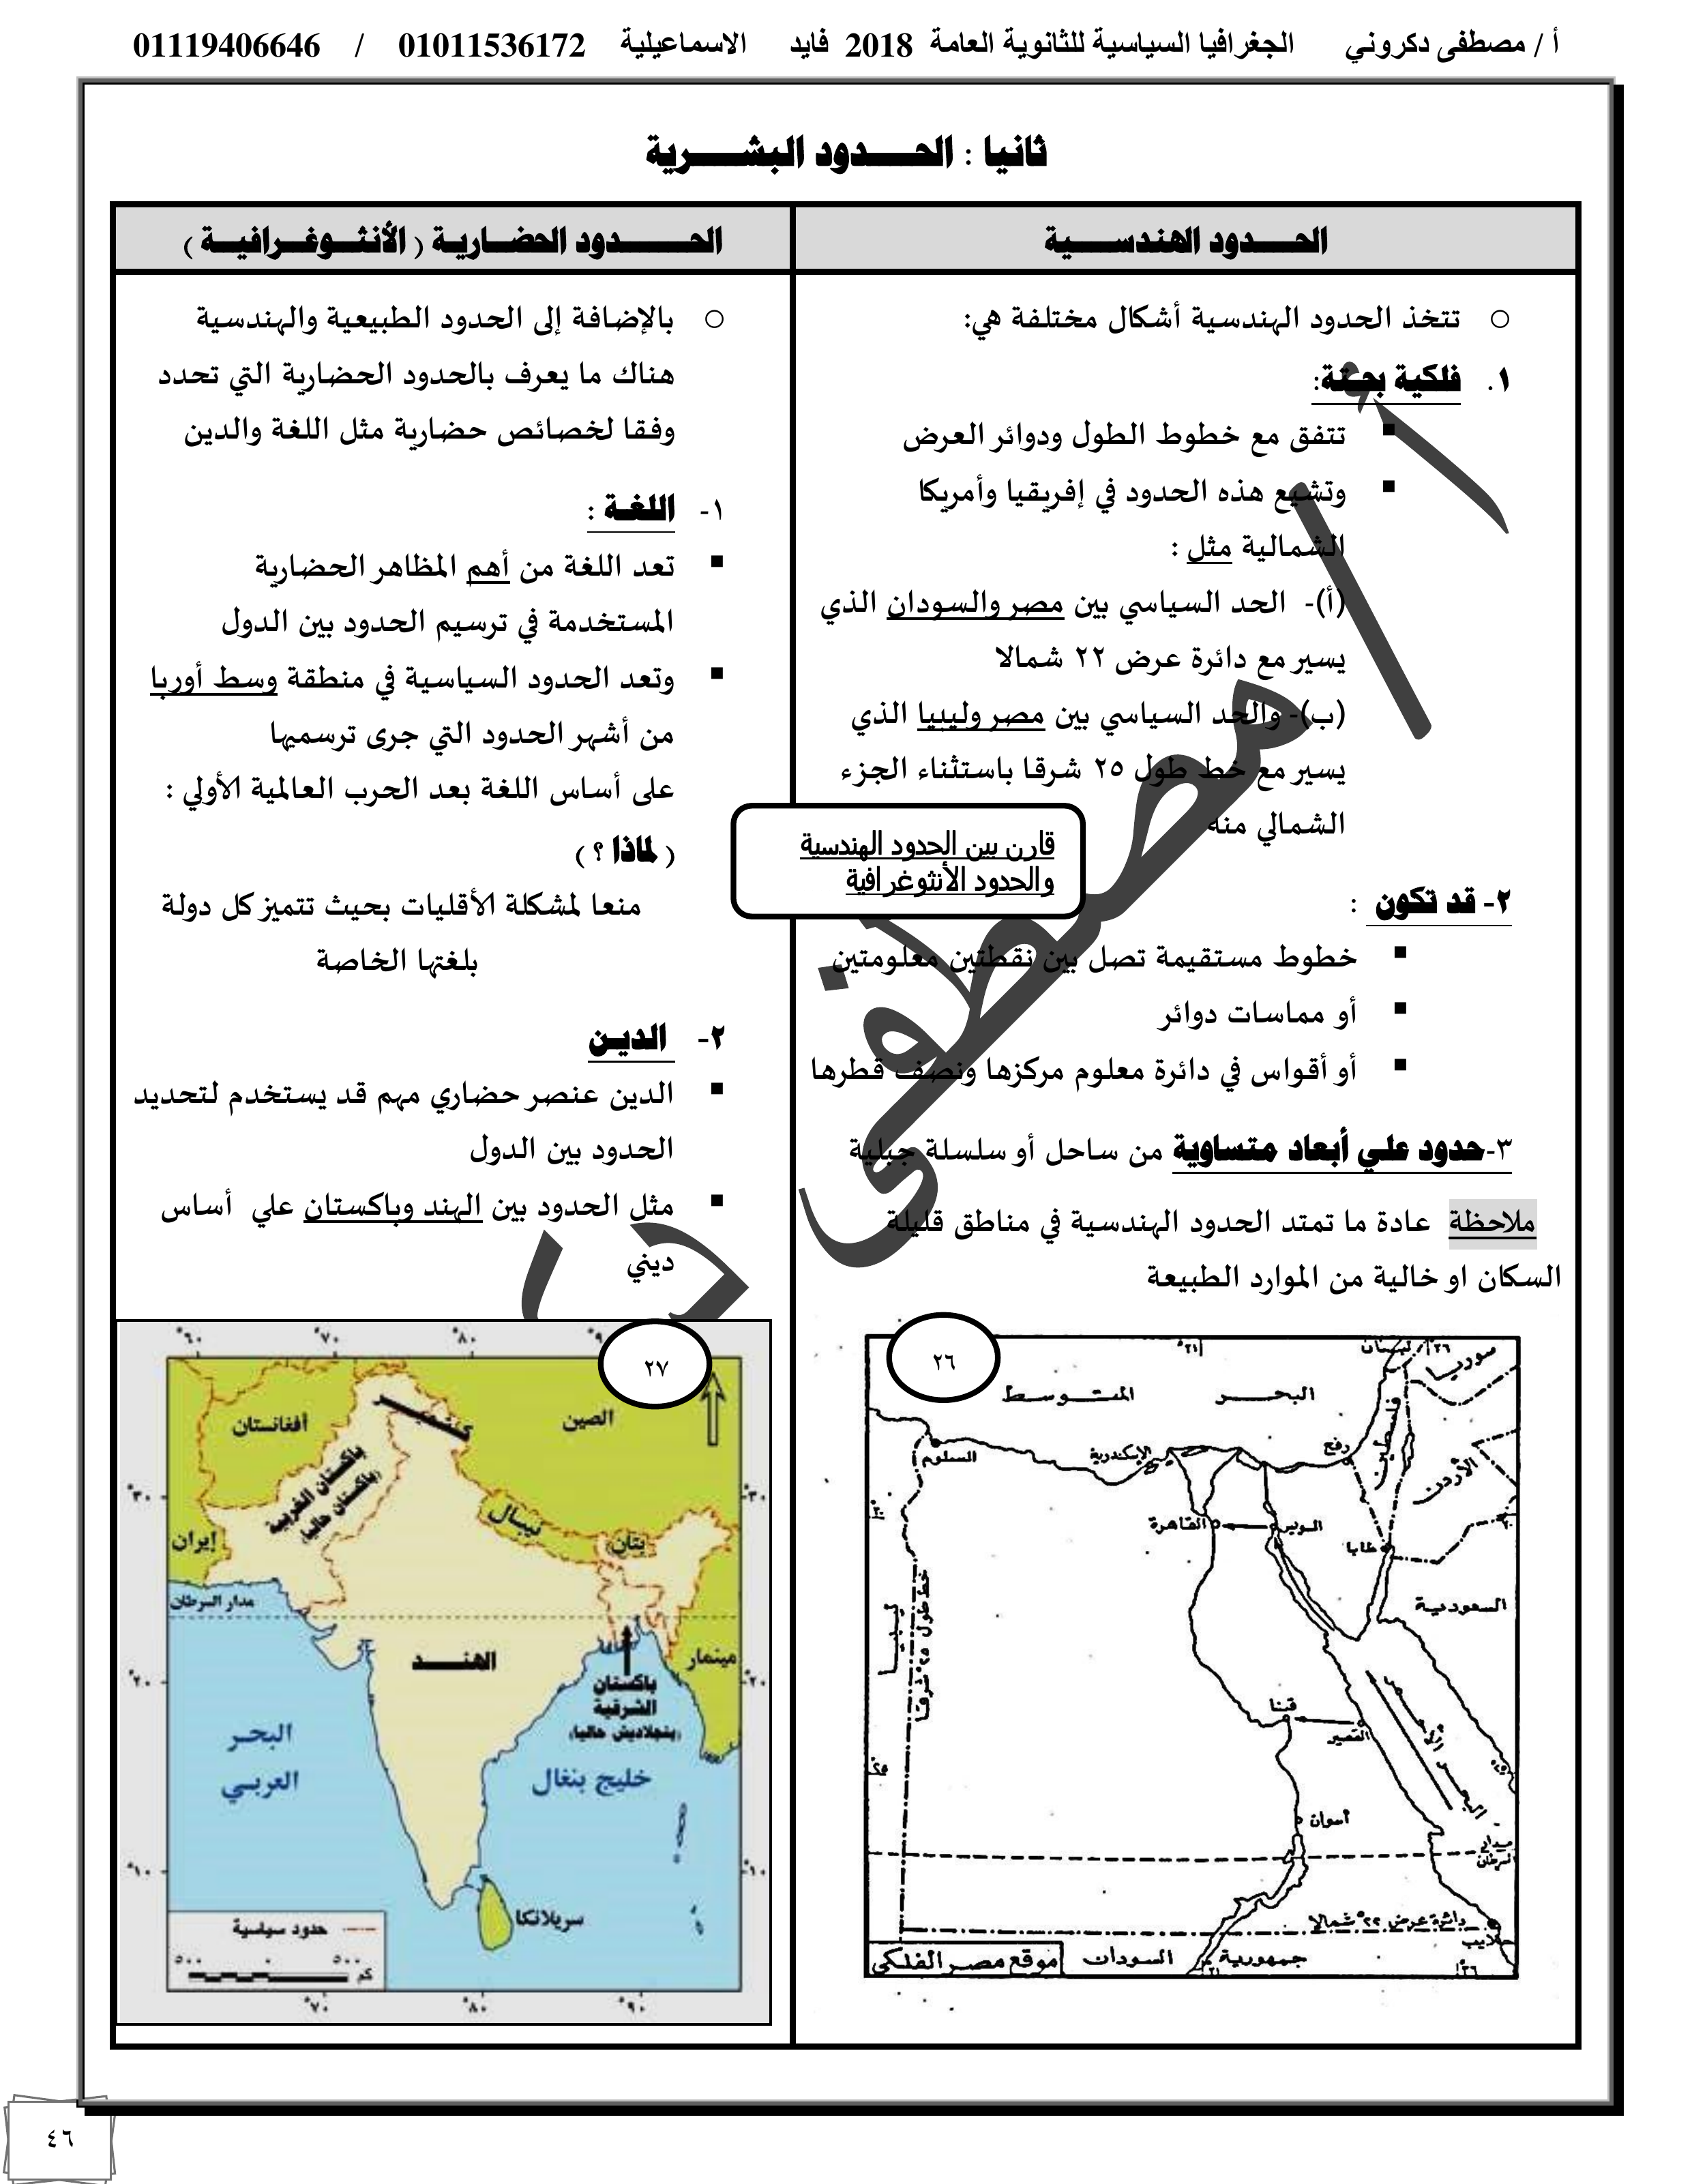 أ / مصطفى دكروني الجغرافيا السياسية للثانوية العامة 2018 فايد الاسماعيلية 01011536172 / 01119406646
ثانيا : الحدود البشرية
الحدود الهندسية
تتخذ الحدود الهندسية أشكال مختلفة هي:
١. فلكية بحتة:
تتفق مع خطوط الطول ودوائر العرض
وتشيع هذه الحدود في إفريقيا وأمريكا
الشمالية مثل :
(أ)- الحد السياسي بين مصر والسودان الذي
يسير مع دائرة عرض ٢٢ شمالا
(ب)- والحد السياسي بين مصر وليبيا الذي
يسير مع خط طول ٢٥ شرقا باستثناء الجزء
الشمالي منه
٢- قد تكون :
خطوط مستقيمة تصل بين نقطتين معلومتين
أو مماسات دوائر
أو أقواس في دائرة معلوم مركزها ونصف قطرها
٣-حدود علي أبعاد متساوية من ساحل أو سلسلة جبلية
ملاحظة عادة ما تمتد الحدود الهندسية في مناطق قليلة
السكان او خالية من الموارد الطبيعة
٢٦
°٣١
لبنان
°٣٦
سوريا
البحر المتوسط
فلسطين
السلوم
الإسكندرية
رفح
الأردن
القاهرة
السويس
طابا
السعودية
ليبيا
خط طول °٢٥ شرقا
قنا
القصير
البحر الأحمر
°٢٥
أسوان
مدار
السرطان
دائرة عرض °٢٢ شمالا
حلايب
جمهورية السودان
موقع مصر الفلكي
°٣٦
الحدود الحضارية ( الأنثوغرافية )
بالإضافة إلى الحدود الطبيعية والهندسية
هناك ما يعرف بالحدود الحضارية التي تحدد
وفقا لخصائص حضارية مثل اللغة والدين
١- اللغة :
تعد اللغة من أهم المظاهر الحضارية
المستخدمة في ترسيم الحدود بين الدول
وتعد الحدود السياسية في منطقة وسط أوربا
من أشهر الحدود التي جرى ترسميها
على أساس اللغة بعد الحرب العالمية الأولي :
( لماذا ؟ )
منعا لمشكلة الأقليات بحيث تتميز كل دولة
بلغتها الخاصة
٢- الدين
الدين عنصر حضاري مهم قد يستخدم لتحديد
الحدود بين الدول
مثل الحدود بين الهند وباكستان علي أساس
ديني
قارن بين الحدود الهندسية
والحدود الأنثوغرافية
٢٧
°٦٠ °٧٠ °٨٠
أفغانستان
كشمير
الصين
باكستان الغربية
(باكستان حاليا)
°٣٠
°٣٠
نيبال
بتان
إيران
مدار السرطان
الهند
مينمار
باكستان
الشرقية
(بنجلاديش حاليا)
°٢٠
°٢٠
البحر
العربي
خليج بنغال
°١٠
°١٠
سريلانكا
حدود سياسية
٥٠٠ ٠ ٥٠٠
كم
°٧٠ °٨٠ °٩٠
أ / مصطفى
٤٦